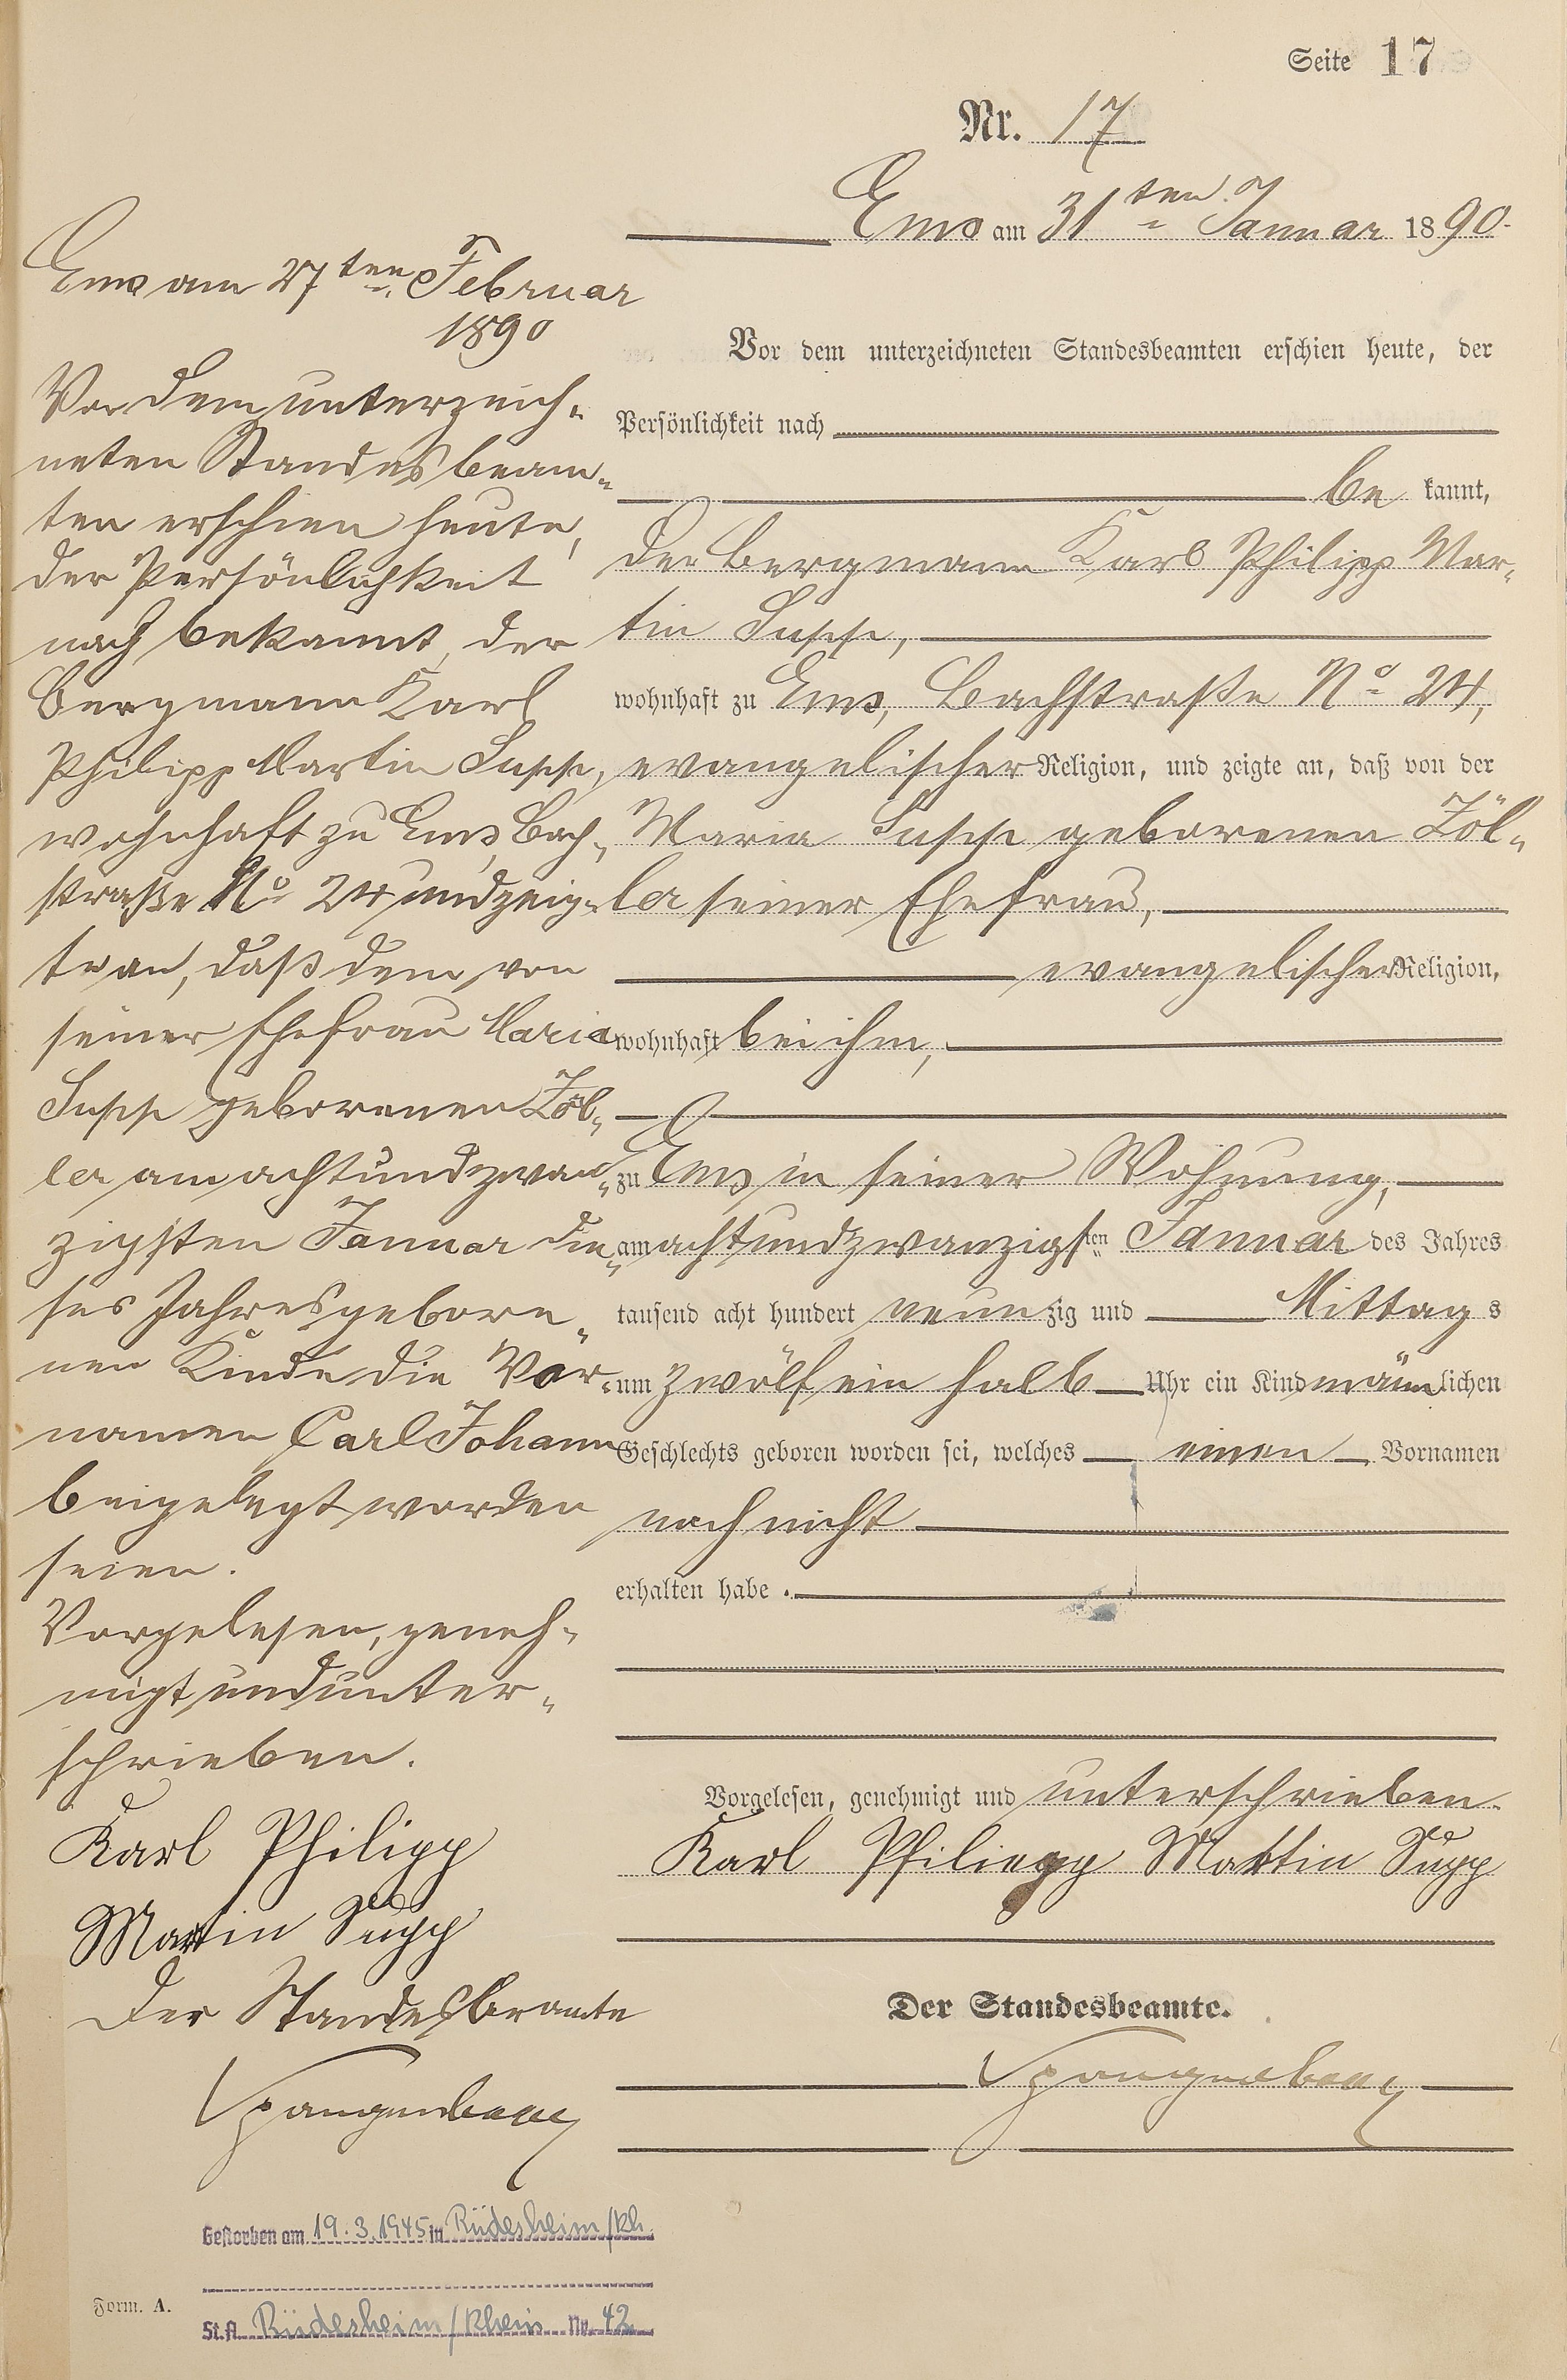 Seite 17
Nr. 17
Ems am 31ten Januar 1890.
Vor dem unterzeichneten Standesbeamten erschien heute, der
Persönlichkeit nach
be kannt,
der Bergmann Karl Philipp Mar-
tin Supp,
wohnhaft zu Ems, Bachstraße No 24,
evangelischer Religion, und zeigte an, daß von der
Maria Supp geborenen Zöl-
ler seiner Ehefrau,
evangelischer Religion,
wohnhaft bei ihm,
zu Ems in seiner Wohnung,
am achtundzwanzigsten Januar des Jahres
tausend acht hundert neunzig und Mittags
um zwölf ein halb Uhr ein Kind männlichen
Geschlechts geboren worden sei, welches einen Vornamen
noch nicht
erhalten habe.
Vorgelesen, genehmigt und unterschrieben.
Karl Philiepp Martin Supp
Der Standesbeamte.
Spangenberg
Ems am 27ten Februar
1890
Vor dem unterzeich-
neten Standesbeam-
ten erschien heute,
der Persönlichkeit
nach bekannt, der
Bergmann Karl
Philipp Martin Supp,
wohnhaft zu Ems, Bach-
straße No 24 und zeig-
te an, daß dem von
seiner Ehefrau Maria
Supp geborenen Zöl-
ler am achtundzwan-
zigsten Januar die-
ses Jahres gebore-
nen Kinde die Vor-
namen Carl Johann
beigelegt worden
seien.
Vorgelesen, geneh-
migt und unter-
schrieben.
Karl Philipp
Martin Supp
Der Standesbeamte
Spangenberg
Gestorben am 19.3.1945 in Rüdesheim/Rh.
St.A. Rüdesheim/Rhein Nr. 42
Form. A.